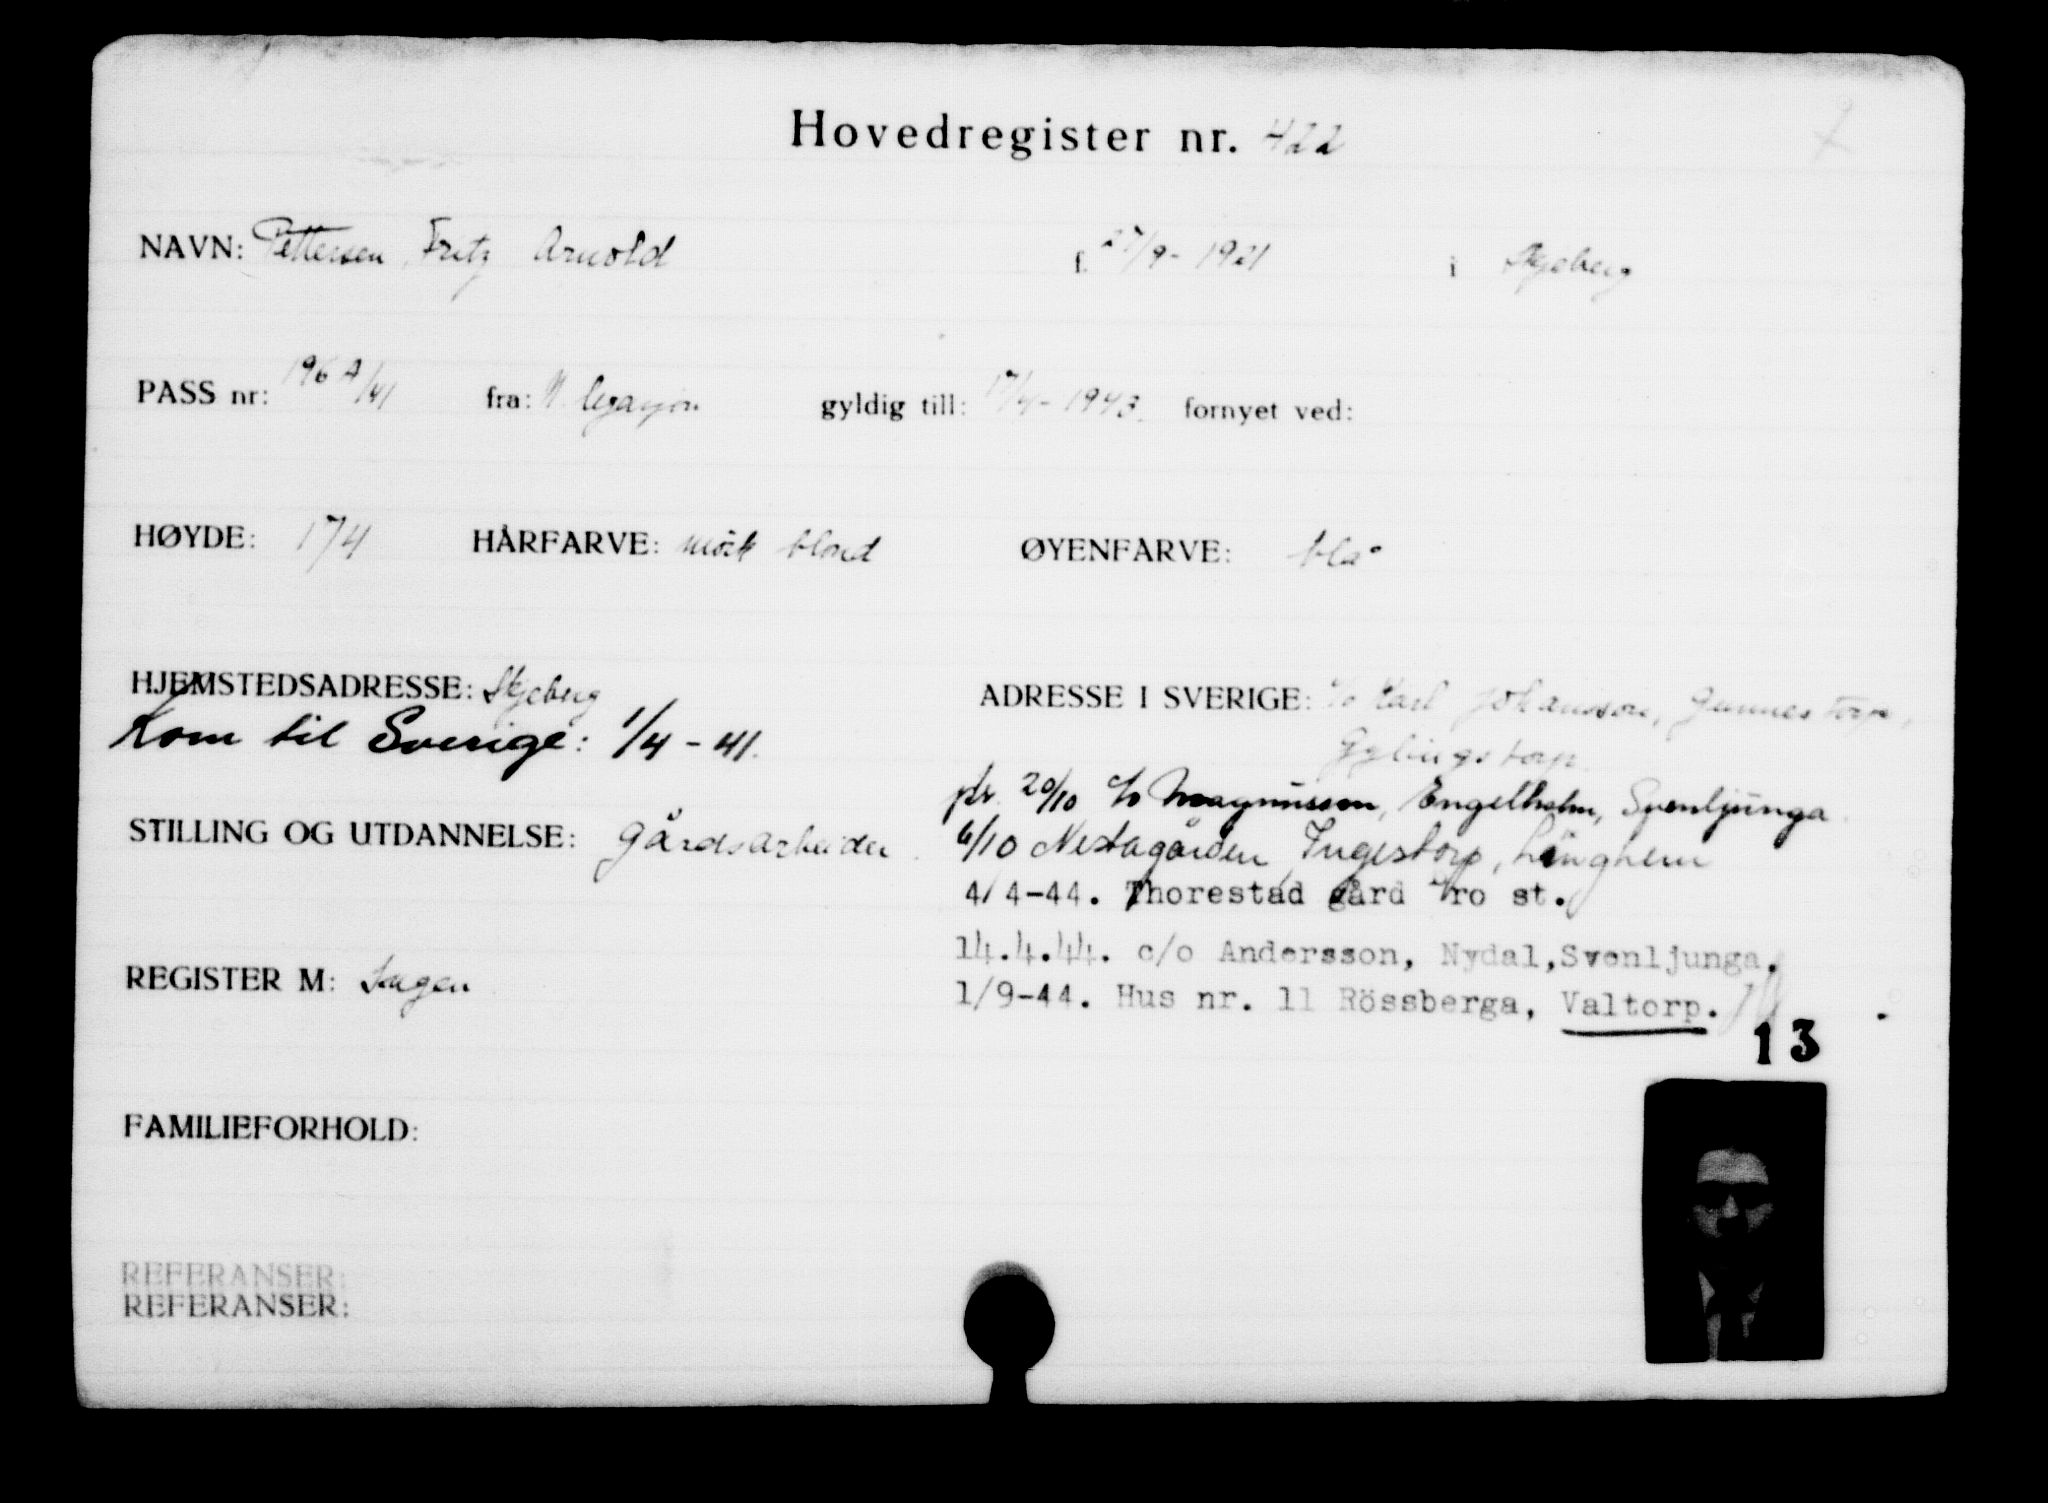 Hovedregister nr. 422
NAVN: Pettersen, Fritz Arnold f. 27/9-1921 i Skjeberg
PASS nr: 196 A/41 fra: N. legasjon gyldig till: 17/4-1943. fornyet ved:
HØYDE: 174 HÅRFARVE: mörk blond ØYENFARVE: blå
HJEMSTEDSADRESSE: Skjeberg ADRESSE I SVERIGE: c/o Karl Johansson, Gunnestorp,
Kom til Sverige: 1/4-41.
pr. 20/10 c/o Magnusson, Engelholm, Svenljunga.
STILLING OG UTDANNELSE: Gårdsarbeider. 6/10 Nestagården, Ingestorp, Länghem
4/4-44. Thorestad gård Bro st.
14.4.44. c/o Andersson, Nydal, Svenljunga.
REGISTER M: Ingen
1/9-44. Hus nr. 11 Rössberga, Valtorp.
13
FAMILIEFORHOLD:
REFERANSER:
REFERANSER: